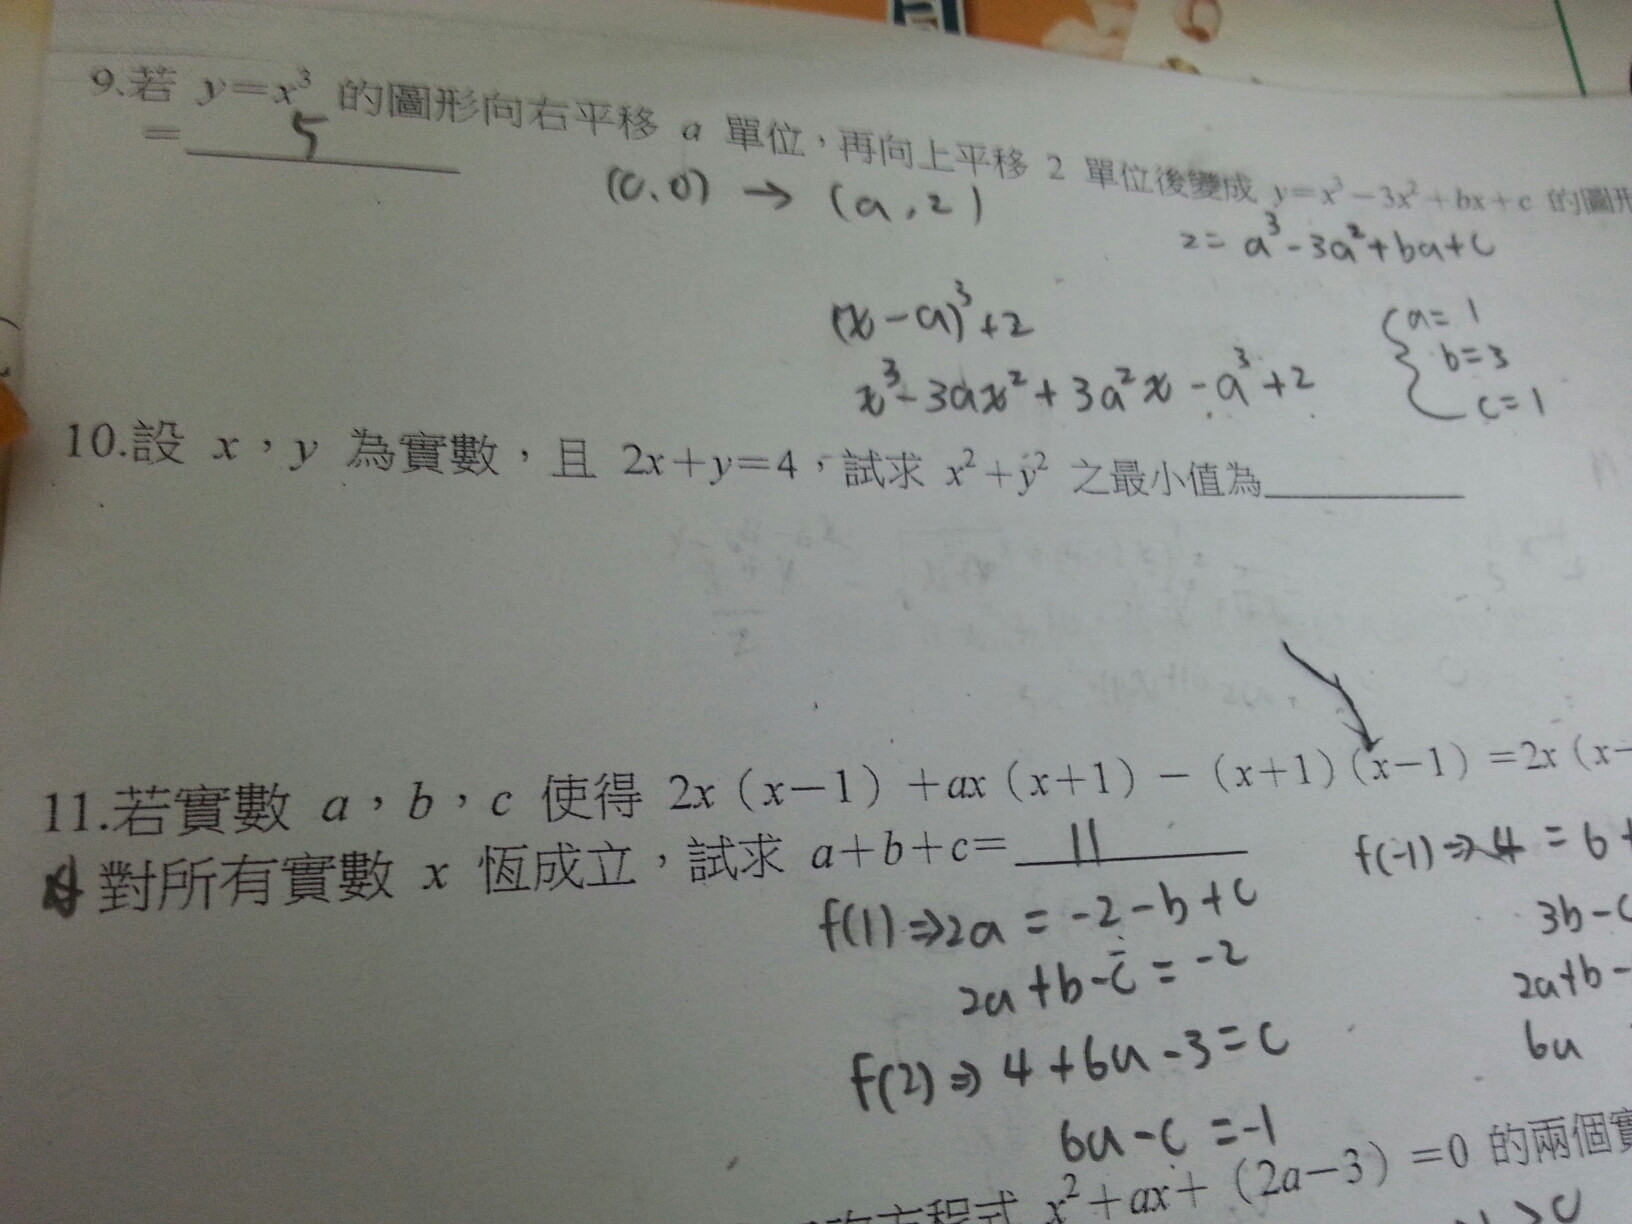 9.若 y=x³ 的圖形向右平移 a 單位，再向上平移 2 單位後變成 y=x³−3x²+bx+c 的圖形
= 5
(0,0) → (a,2)
2= a³-3a²+ba+c
(x-a)³+2
x³-3ax²+3a²x-a³+2
a=1
b=3
c=1
10.設 x，y 為實數，且 2x+y=4，試求 x²+y² 之最小值為
11.若實數 a，b，c 使得 2x（x−1）+ax（x+1）−（x+1）（x−1）=2x（x−
對所有實數 x 恆成立，試求 a+b+c= 11
f(1)⇒2a = -2-b+c
2a+b-c=-2
f(2)⇒4+6a-3=c
6a-c=-1
f(-1)⇒4=6+
3b-c
2a+b-
6a
方程式 x²+ax+（2a−3）=0 的兩個實
>0